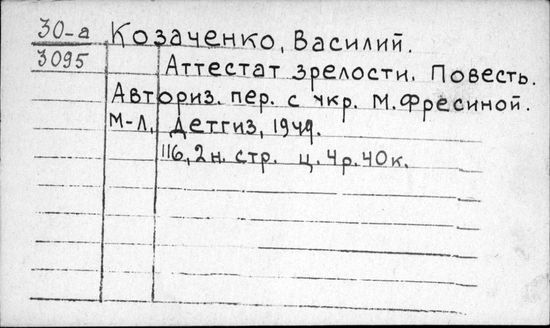 30-а Козаченко, Василий.
3095 Аттестат зрелости. Повесть.
Авториз. пер. с укр. М. Фресиной.
М-Л, Детгиз, 1949.
116, 2 н. стр. ц. 4 р. 40 к.